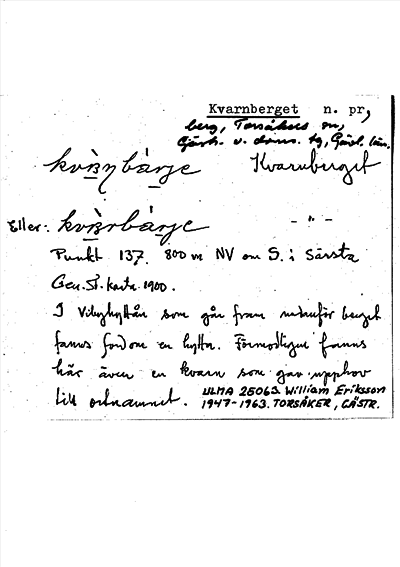 Kvarnberget n. pr,
berg, Torsåkers sn,
Gästr. v. doms. tg, Gävl. län.
kvὰrnybȧrje Kvarnberget
Eller: kvὰrbȧrje — " —
Punkt 137. 800 m NV om S. i Särsta
Gen. St. karta 1900.
I Vibyhyttån som går fram nedanför berget
fanns fordom en hytta. Förmodligen fanns
här även en kvarn som gav upphov
till ortnamnet. ULMA 25063. William Eriksson
1947-1963. TORSÅKER, GÄSTR.